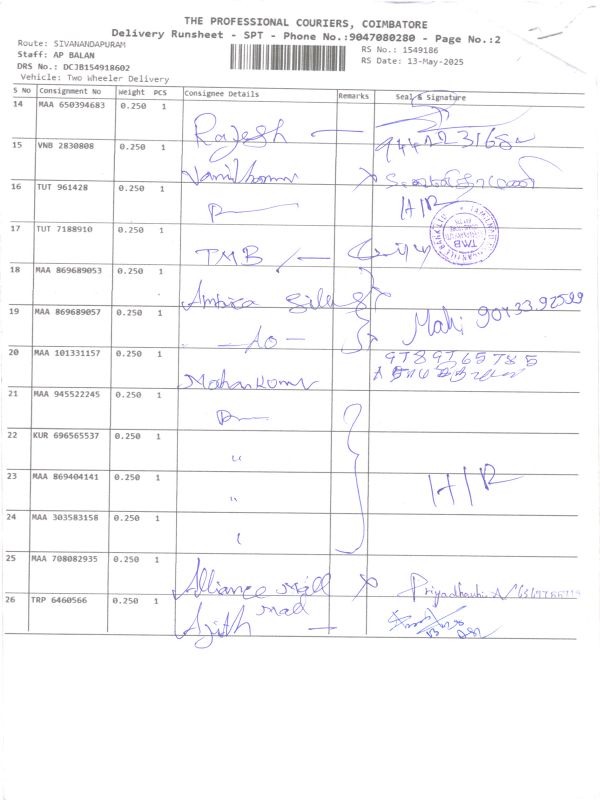 THE PROFESSIONAL COURIERS, COIMBATORE
Delivery Runsheet - SPT - Phone No.:9047080280 - Page No.:2
Route: SIVANANDAPURAM
RS No.: 1549186
Staff: AP BALAN
RS Date: 13-May-2025
DRS No.: DCJB154918602
Vehicle: Two Wheeler Delivery
S No Consignment No Weight PCS Consignee Details Remarks Seal & Signature
14 MAA 650394683 0.250 1 Rajesh
15 VNB 2830808 0.250 1
16 TUT 961428 0.250 1 H/R
17 TUT 7188910 0.250 1 TMB
TMB
18 MAA 869689053 0.250 1 Ambica
19 MAA 869689057 0.250 1 Mahi 90433 92599
20 MAA 101331157 0.250 1 Mohankumar
9789765785
21 MAA 945522245 0.250 1
22 KUR 696565537 0.250 1 "
23 MAA 869404141 0.250 1 " H/R
24 MAA 303583158 0.250 1
25 MAA 708082935 0.250 1 Alliance Mill
26 TRP 6460566 0.250 1 Ajith